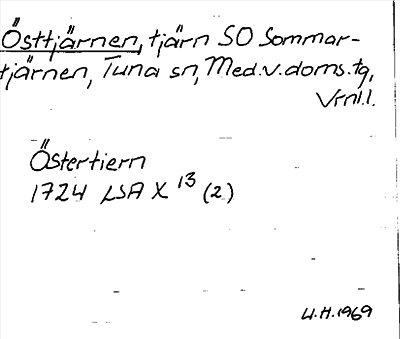 Östtjärnen, tjärn SO Sommar-
tjärnen, Tuna sn, Med.v.doms.tg,
Vrnl.l.
Östertiern
1724 LSA X 13 (2)
U.H. 1969